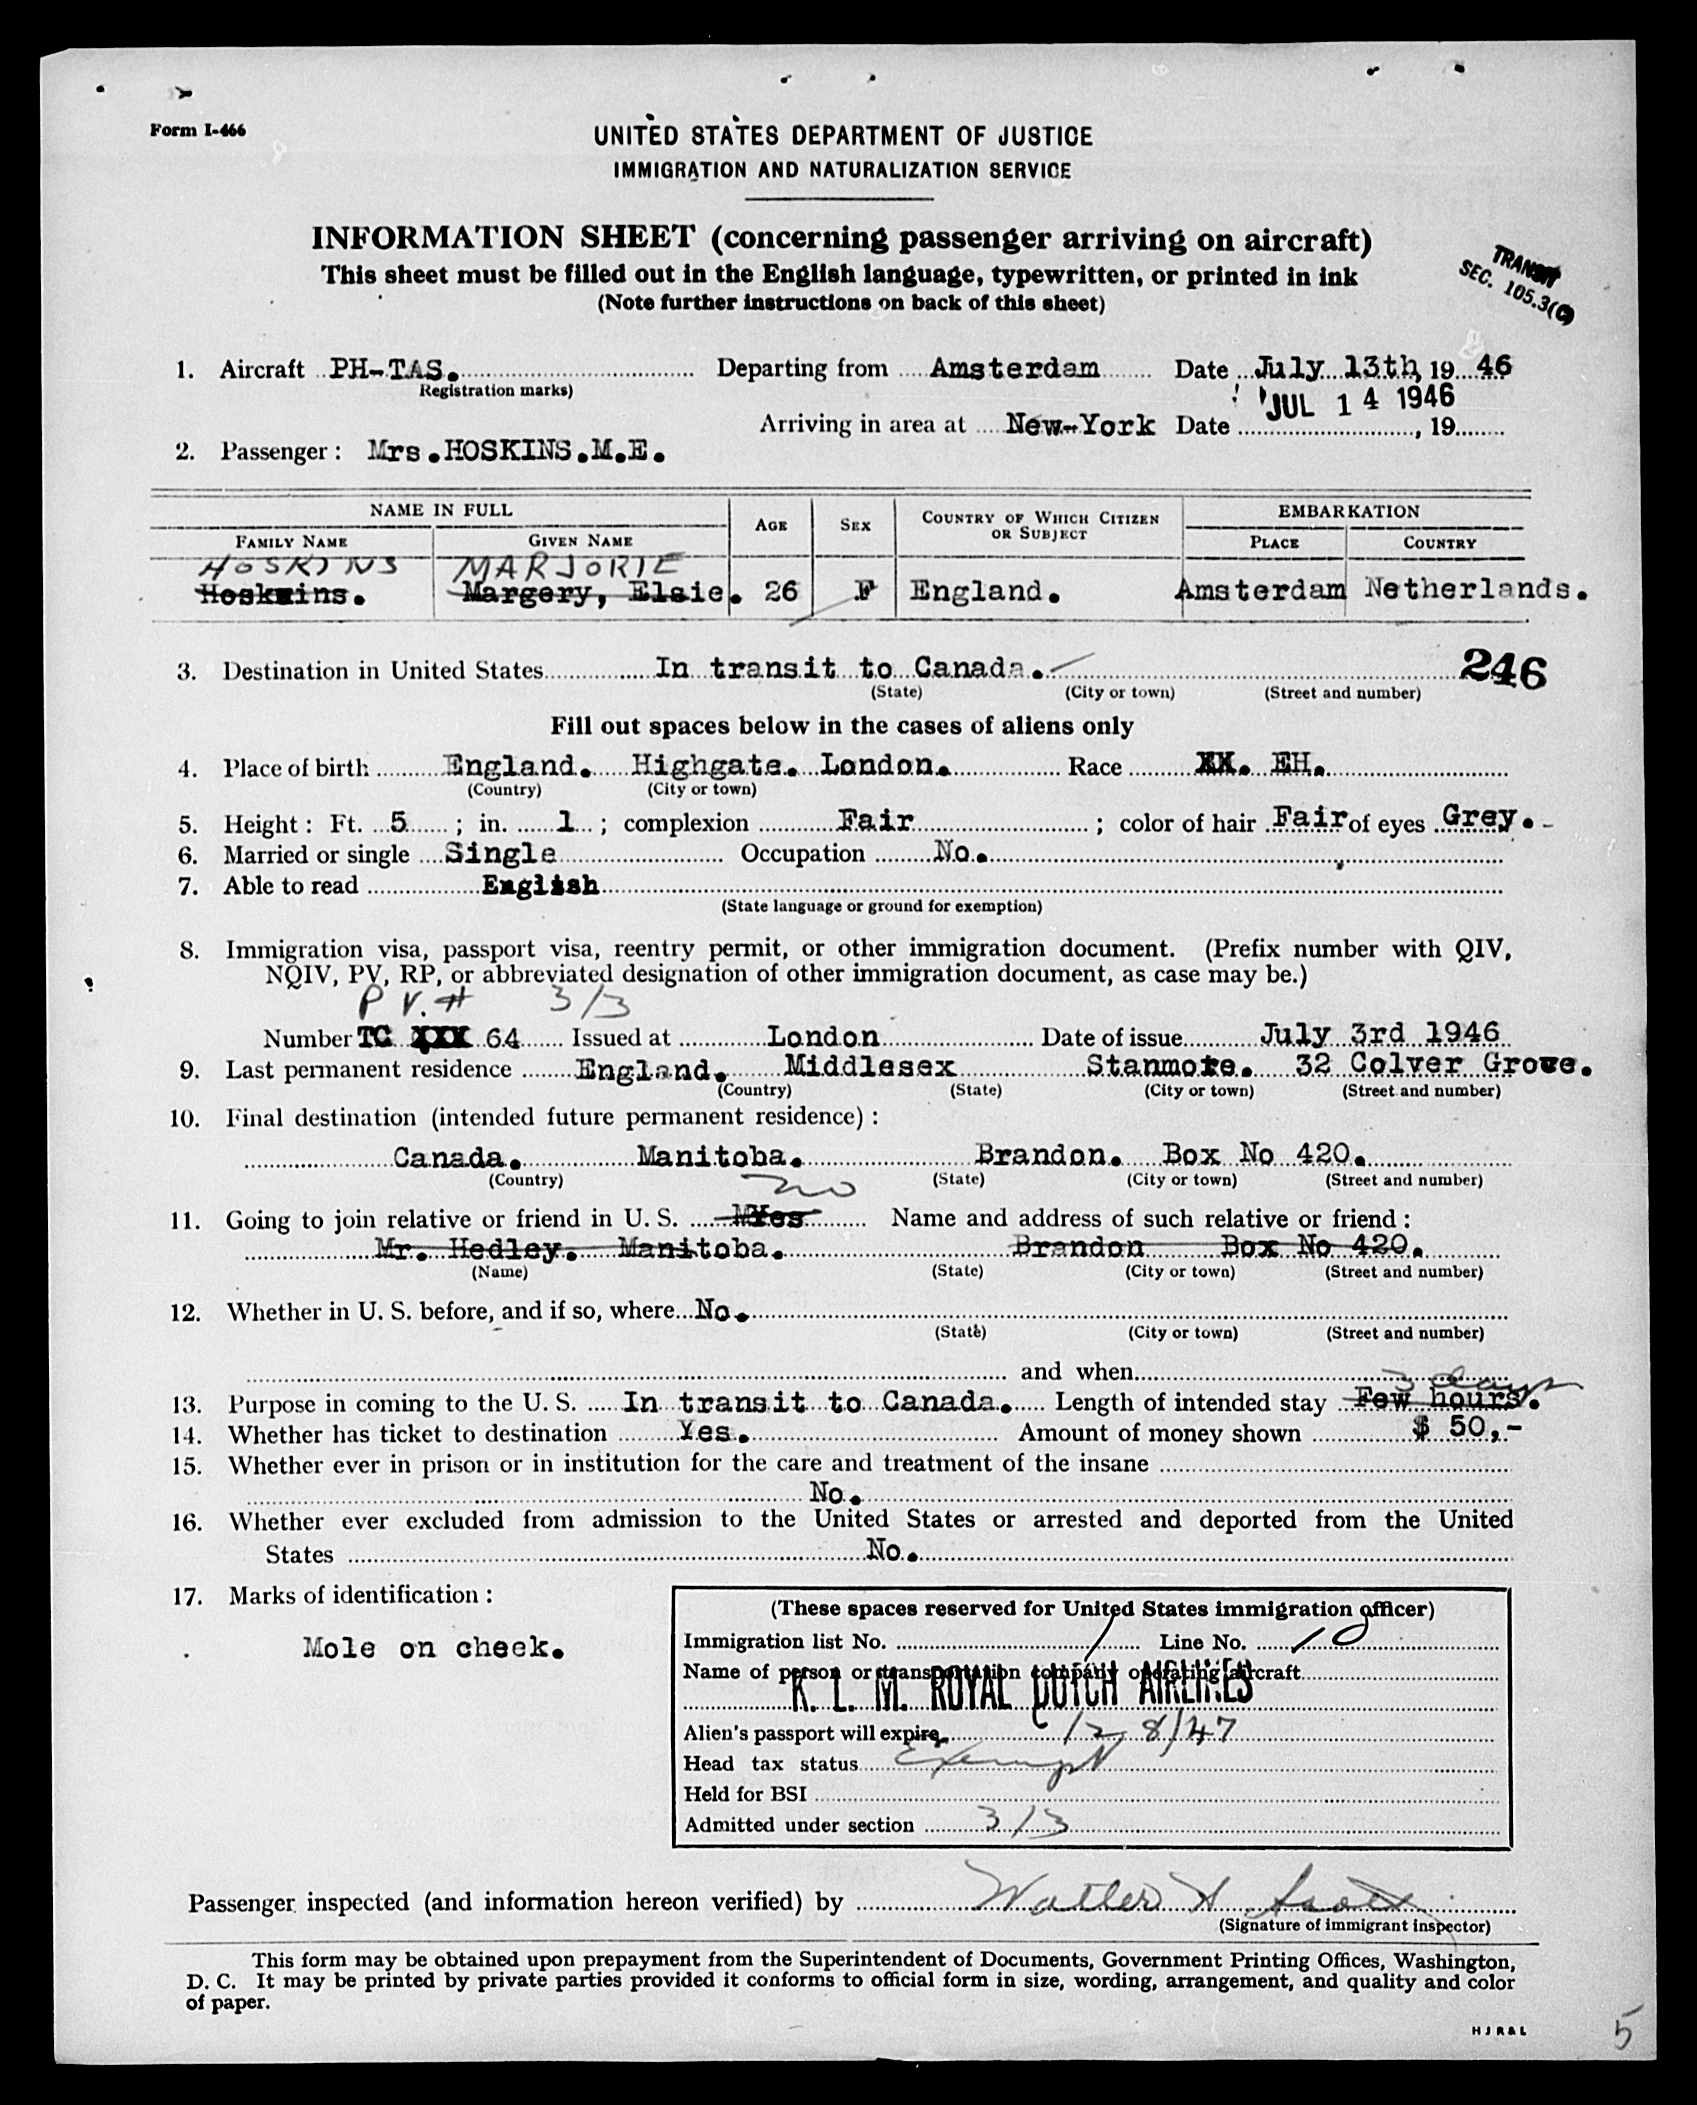 Form I-466
UNITED STATES DEPARTMENT OF JUSTICE
IMMIGRATION AND NATURALIZATION SERVICE
INFORMATION SHEET (concerning passenger arriving on aircraft)
This sheet must be filled out in the English language, typewritten, or printed in ink
(Note further instructions on back of this sheet)
TRANSIT
SEC. 105.3(C)
1. Aircraft PH-TAS. Departing from Amsterdam Date July 13th, 19 46
(Registration marks)
JUL 14 1946
Arriving in area at New-York Date , 19
2. Passenger: Mrs.HOSKINS.M.E.
NAME IN FULL AGE SEX COUNTRY OF WHICH CITIZEN OR SUBJECT EMBARKATION
FAMILY NAME GIVEN NAME PLACE COUNTRY
HOSKINS MARJORIE
Hoskins. Margery, Elsie. 26 F England. Amsterdam Netherlands.
3. Destination in United States In transit to Canada. 246
(State) (City or town) (Street and number)
Fill out spaces below in the cases of aliens only
4. Place of birth England. Highgate. London. Race XX. EH.
(Country) (City or town)
5. Height: Ft. 5 ; in. 1 ; complexion Fair ; color of hair Fair of eyes Grey.
6. Married or single Single Occupation No.
7. Able to read English
(State language or ground for exemption)
8. Immigration visa, passport visa, reentry permit, or other immigration document. (Prefix number with QIV,
NQIV, PV, RP, or abbreviated designation of other immigration document, as case may be.)
P V. # 3/3
Number TC XXX 64 Issued at London Date of issue July 3rd 1946
9. Last permanent residence England. Middlesex Stanmore. 32 Colver Grove.
(Country) (State) (City or town) (Street and number)
10. Final destination (intended future permanent residence):
Canada. Manitoba. Brandon. Box No 420.
(Country) (State) (City or town) (Street and number)
no
11. Going to join relative or friend in U. S. Yes Name and address of such relative or friend:
Mr. Hedley. Manitoba. Brandon Box No 420.
(Name) (State) (City or town) (Street and number)
12. Whether in U. S. before, and if so, where No.
(State) (City or town) (Street and number)
and when
3 days
13. Purpose in coming to the U. S. In transit to Canada. Length of intended stay Few hours.
14. Whether has ticket to destination Yes. Amount of money shown $ 50,-
15. Whether ever in prison or in institution for the care and treatment of the insane
No.
16. Whether ever excluded from admission to the United States or arrested and deported from the United
States No.
17. Marks of identification:
Mole on cheek.
(These spaces reserved for United States immigration officer)
Immigration list No. 1 Line No. 10
Name of person or transportation company operating aircraft
K. L. M. ROYAL DUTCH AIRLINES
Alien's passport will expire 12/8/47
Head tax status Exempt
Held for BSI
Admitted under section 3/3
Passenger inspected (and information hereon verified) by Walter
(Signature of immigrant inspector)
This form may be obtained upon prepayment from the Superintendent of Documents, Government Printing Offices, Washington,
D. C. It may be printed by private parties provided it conforms to official form in size, wording, arrangement, and quality and color
of paper.
H J R & L
5